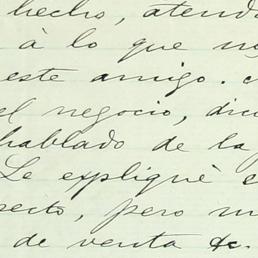 hecho, atend
à lo que no
este amigo.
el negocio, dic
hablado de la
Le expliqué
pecto, pero
de venta &c.